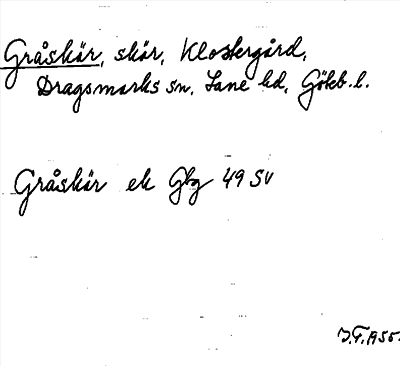 Gråskär, skär, Klostergård,
Dragsmarks sn, Lane hd, Göteb. l.
Gråskär ek Gbg 49 SV
J.F. 1955.